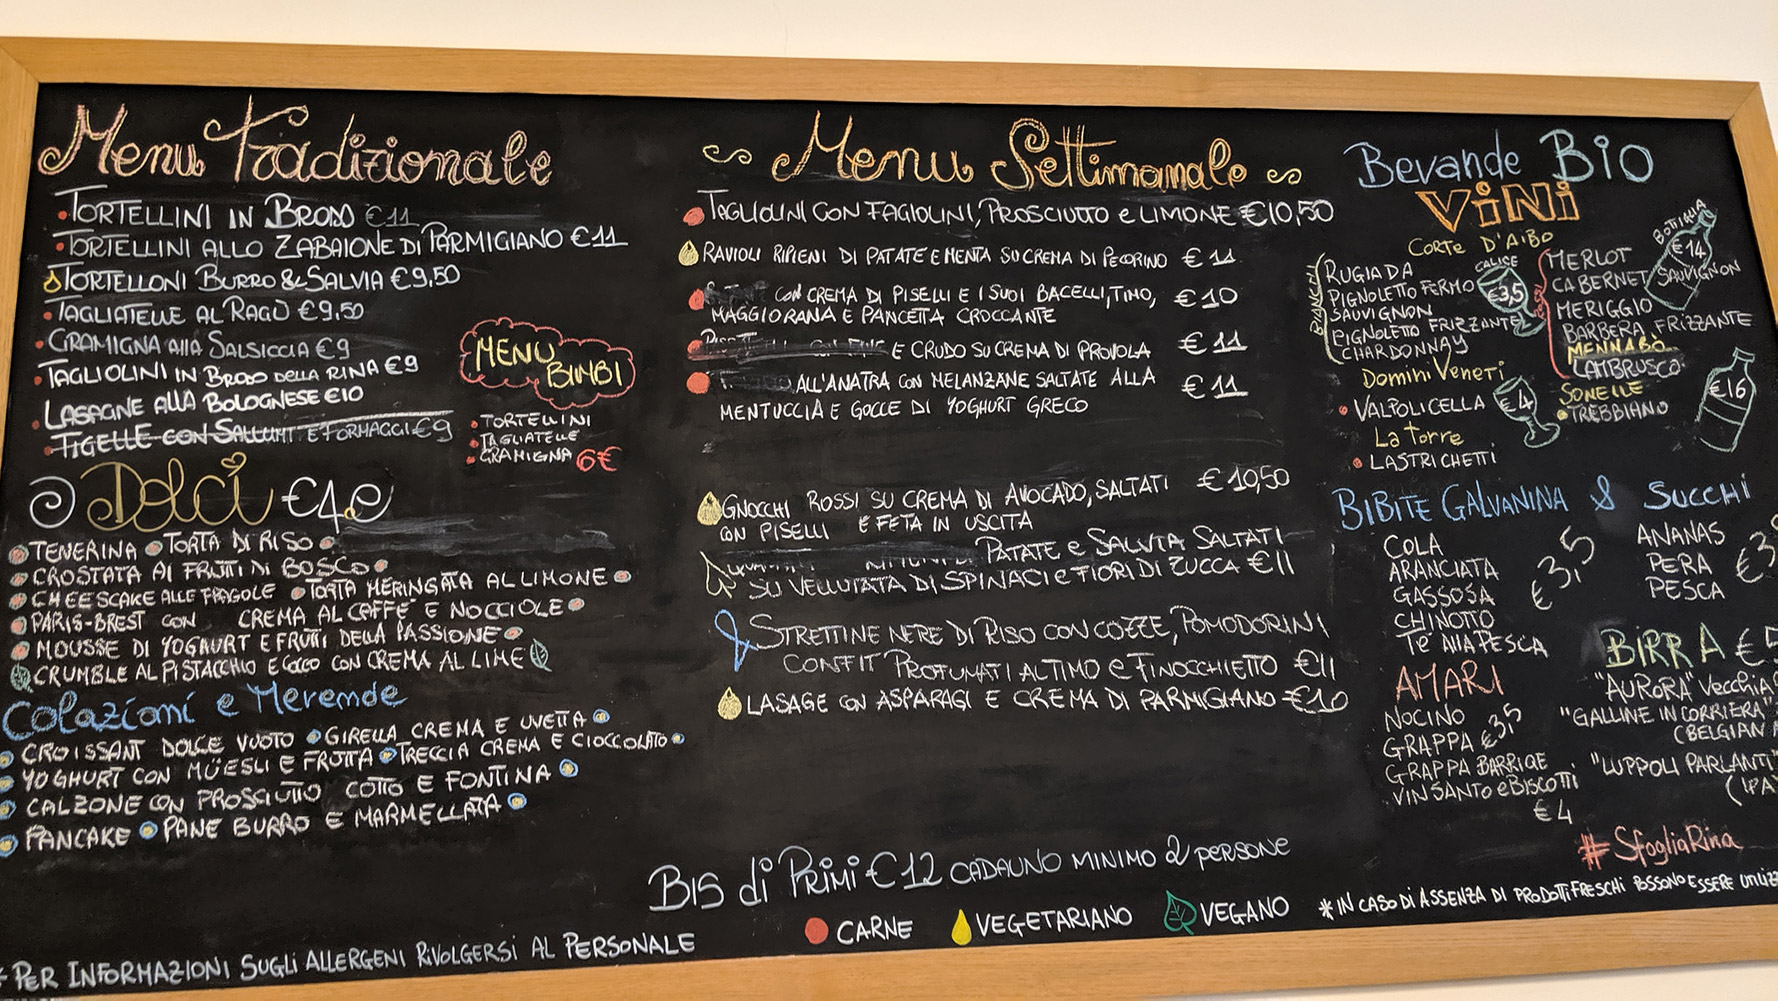 Menu Tradizionale
TORTELLINI IN BRODO €11
TORTELLINI ALLO ZABAIONE DI PARMIGIANO €11
TORTELLONI BURRO & SALVIA €9,50
TAGLIATELLE AL RAGÙ €9,50
GRAMIGNA ALLA SALSICCIA €9
TAGLIOLINI IN BRODO DELLA RINA €9
LASAGNE ALLA BOLOGNESE €10
TIGELLE CON SALUMI E FORMAGGI €9
MENU BIMBI
TORTELLINI
TAGLIATELLE
GRAMIGNA 6€
Dolci €4
TENERINA TORTA DI RISO
CROSTATA AI FRUTTI DI BOSCO
CHEESCAKE ALLE FRAGOLE TORTA MERINGATA AL LIMONE
PARIS-BREST CON CREMA AL CAFFÈ E NOCCIOLE
MOUSSE DI YOGHURT E FRUTTI DELLA PASSIONE
CRUMBLE AL PISTACCHIO E COCCO CON CREMA AL LIME
Colazioni e Merende
CROISSANT DOLCE VUOTO GIRELLA CREMA E UVETTA
YOGHURT CON MÜESLI E FRUTTA TRECCIA CREMA E CIOCCOLATO
CALZONE CON PROSCIUTTO COTTO E FONTINA
PANCAKE PANE BURRO E MARMELLATA
* PER INFORMAZIONI SUGLI ALLERGENI RIVOLGERSI AL PERSONALE
Menu Settimanale
TAGLIOLINI CON FAGIOLINI, PROSCIUTTO e LIMONE €10,50
RAVIOLI RIPIENI DI PATATE E MENTA SU CREMA DI PECORINO €11
CON CREMA DI PISELLI E I SUOI BACELLI, TIMO, €10
MAGGIORANA E PANCETTA CROCCANTE
E CRUDO SU CREMA DI PROVOLA €11
ALL'ANATRA CON MELANZANE SALTATE ALLA €11
MENTUCCIA E GOCCE DI YOGHURT GRECO
GNOCCHI ROSSI SU CREMA DI AVOCADO, SALTATI €10,50
CON PISELLI E FETA IN USCITA
PATATE e SALVIA SALTATI
SU VELLUTATA DI SPINACI e FIORI DI ZUCCA €11
STRETTINE NERE DI RISO CON COZZE, POMODORINI
CONFIT PROFUMATI AL TIMO e FINOCCHIETTO €11
LASAGE CON ASPARAGI E CREMA DI PARMIGIANO €10
BIS di PRIMI €12 CADAUNO MINIMO 2 PERSONE
CARNE VEGETARIANO VEGANO
Bevande Bio
VINI
CORTE D'AIBO
BIANCHI
RUGIADA
PIGNOLETTO FERMO
SAUVIGNON
PIGNOLETTO FRIZZANTE
CHARDONNAY
CALICE
€3,5
Domini Veneti
VALPOLICELLA €4
La Torre
LASTRICHETTI
MERLOT
CABERNET SAUVIGNON
MERIGGIO
BARBERA FRIZZANTE
MENNABÒ
LAMBRUSCO
SONELLE
TREBBIANO
BOTTIGLIA
€14
€16
BIBITE GALVANINA & SUCCHI
COLA
ARANCIATA
GASSOSA
CHINOTTO
TÈ ALLA PESCA
€3,5
ANANAS
PERA
PESCA
€3
AMARI
NOCINO
GRAPPA €3,5
GRAPPA BARRIQE
VIN SANTO e BISCOTTI
€4
BIRRA €5
"AURORA" Vecchia
"GALLINE IN CORRIERA"
(BELGIAN A
"LUPPOLI PARLANTI"
(IPA
#SfogliaRina
* IN CASO DI ASSENZA DI PRODOTTI FRESCHI POSSONO ESSERE UTILIZZ